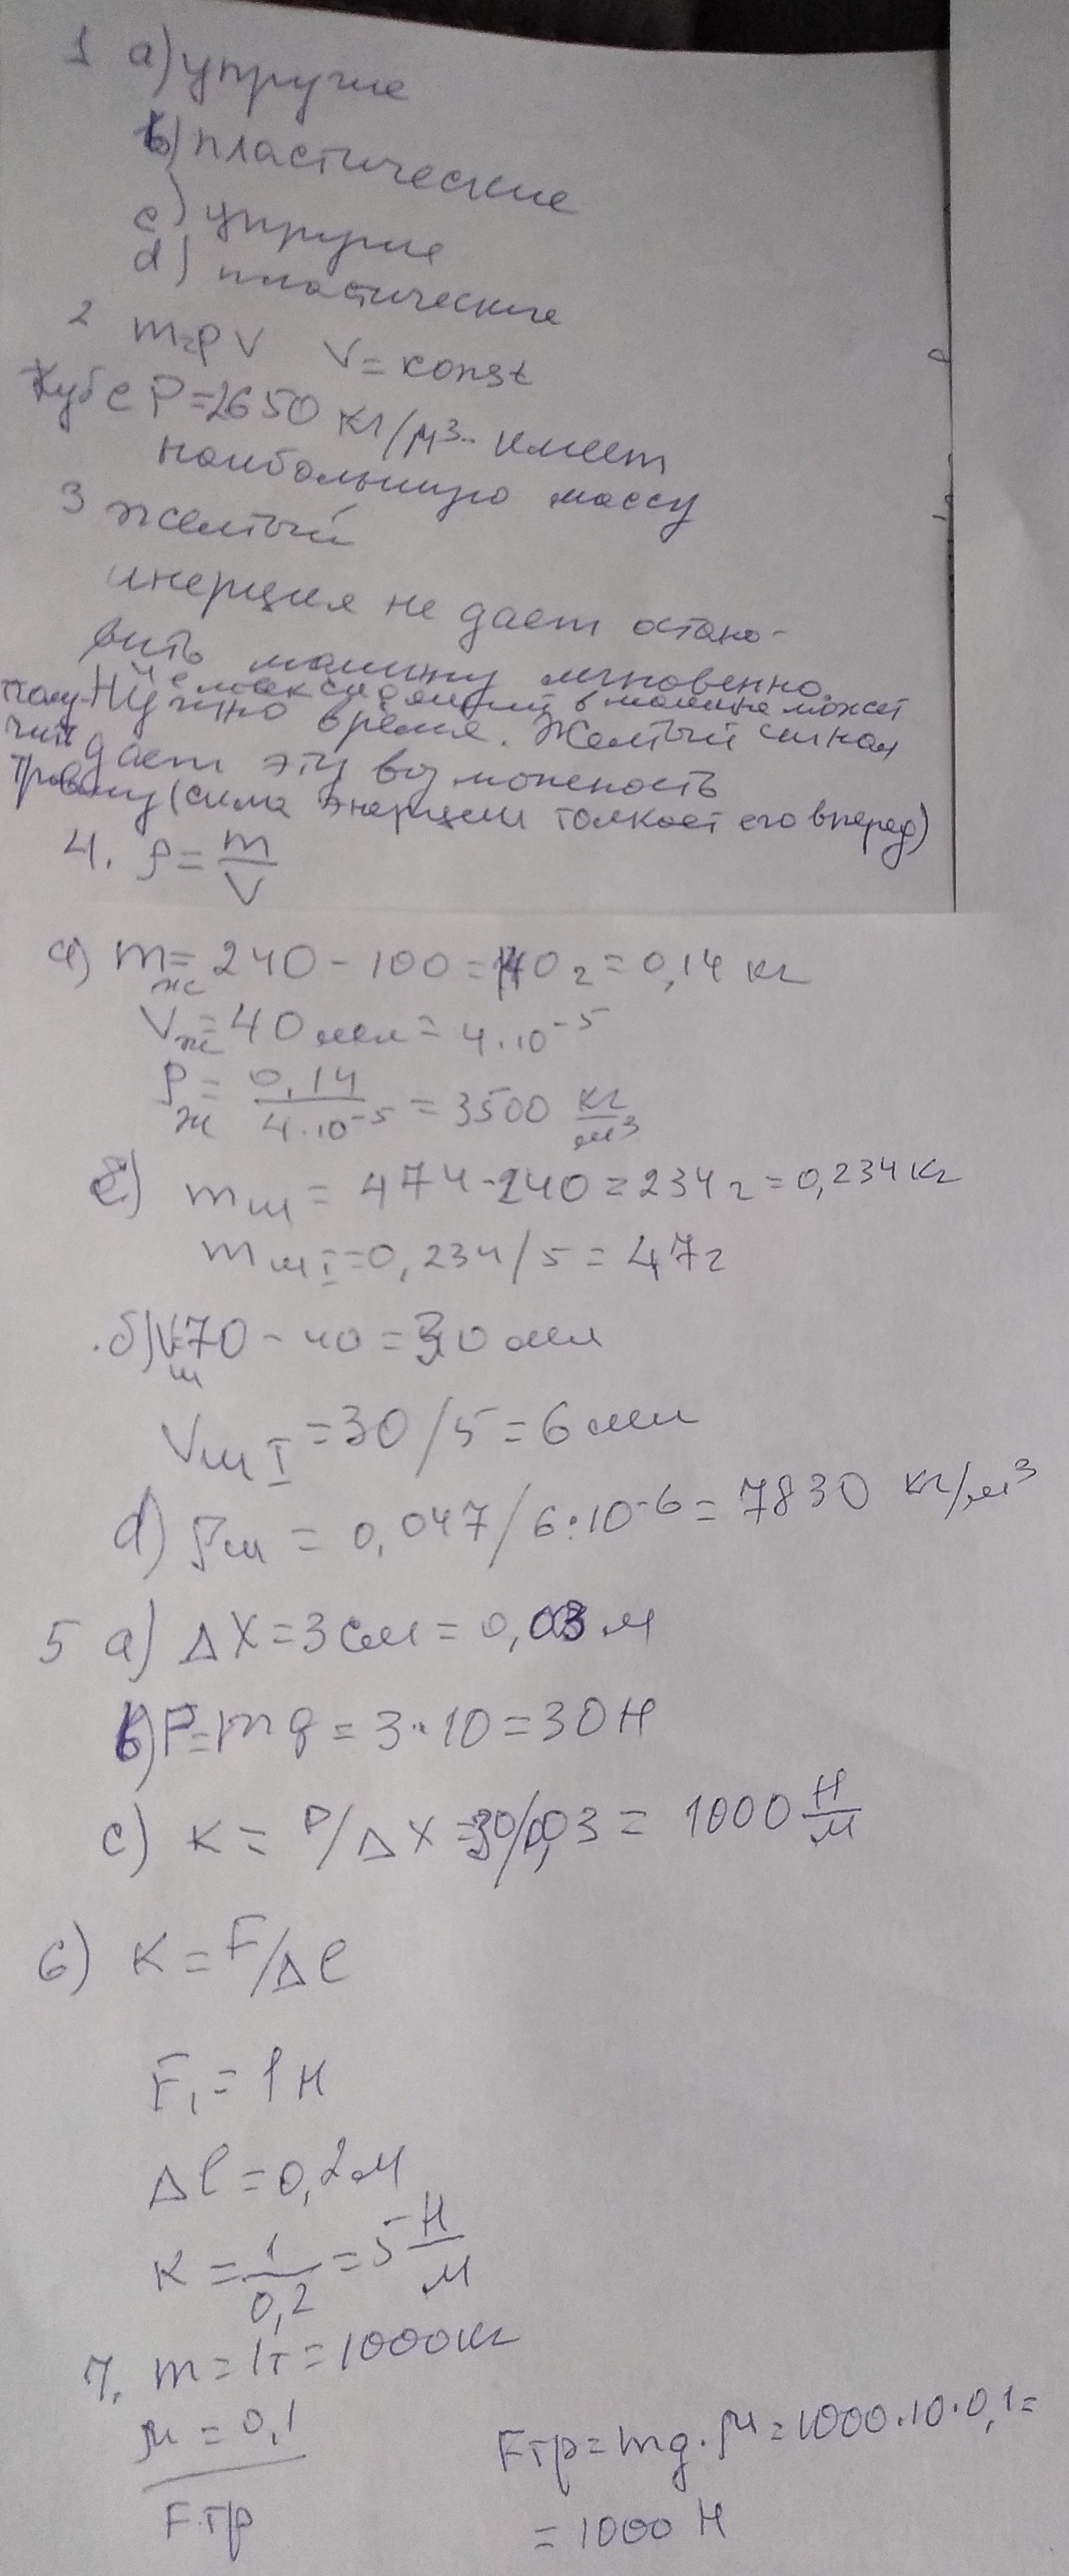 1 а) упругие
b) пластические
c) упругие
d) пластические
2 m=ρV V = konst
Куб с P=2650 кг/м³ имеет
наибольшую массу
3 желтый
инерция не дает остано-
вить машину мгновенно.
Нужно время. Желтый сигнал
дает эту возможность
Также сидящий в машине может
полу-
чить
травму (сила энерции толкает его вперед)
4. ρ = m/V
a) mж = 240 - 100 = 140 г = 0,14 кг
Vж = 40 мл = 4·10⁻⁵
Pж = 0,14/4·10⁻⁵ = 3500 кг/м³
mш = 474-240 = 234 г = 0,234 кг
mшI = 0,234/5 = 47г
б) Vш=70 - 40 = 30 мл
VшI = 30/5 = 6 мл
d) ρш = 0,047/6·10⁻⁶ = 7830 кг/м³
5 а) ΔX = 3 см = 0,03 м
b) P=mg = 3·10 = 30 Н
c) K = P/ΔX =30/0,03 = 1000 Н/м
6) K = F/Δl
F₁ = 1 Н
Δl = 0,2 м
K = 1/0,2 = 5 Н/м
7. m = 1т = 1000 кг
μ = 0,1
Fтр
Fтр = mg·μ = 1000·10·0,1=
= 1000 Н